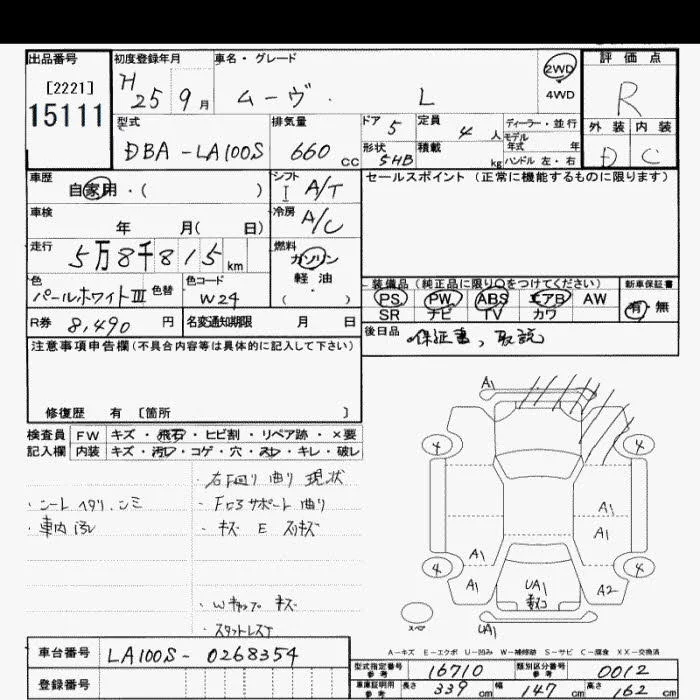 出品番号
[2221]
15111
初度登録年月
H 25 9月
車名・グレード
ムーヴ. L
2WD
4WD
評価点
R
外装 内装
D C
型式
DBA-LA100S
排気量
660 cc
ドア 5
定員 4 人
ディーラー・並行
モデル
年式 年
形状 5HB
積載 kg
ハンドル 左・右
車歴
自家用・( )
シフト
I A/T
セールスポイント (正常に機能するものに限ります)
車検
年 月( 日)
冷房
A/C
走行
5万8千815km
燃料
ガソリン
軽油
( )
色
パールホワイトIII
色替
色コード
W24
装備品 (純正品に限り○をつけてください)
新車保証書
PS PW ABS エアB AW
有・無
SR ナビ TV カワ
R券 8,490 円
名変通知期限 月 日
後日品
保証書、取説
注意事項申告欄(不具合内容等は具体的に記入して下さい)
修復歴 有 [箇所 ]
検査員 FW キズ・飛石・ヒビ割・リペア跡・×要
記入欄 内装 キズ・汚れ・コゲ・穴・スレ・キレ・破レ
右F廻り 曲り 現状
・シートヘタリ.シミ
・Fロアサポート曲り
・車内汚レ
・キズ E スリキズ
・Wキャップキズ
・スタットレスT
A1
4 4
A1
A1
A1
4 4
A1
UA1
A2
UA1
スペア
A-キズ E-エクボ U-凹み W-補修跡 S-サビ C-腐食 XX-交換済
車台番号 LA100S-0268354
登録番号
型式指定番号
参考
16710
類別区分番号
参考
0012
車庫証明用
参考
長さ 339 cm 幅 147 cm 高さ 162 cm